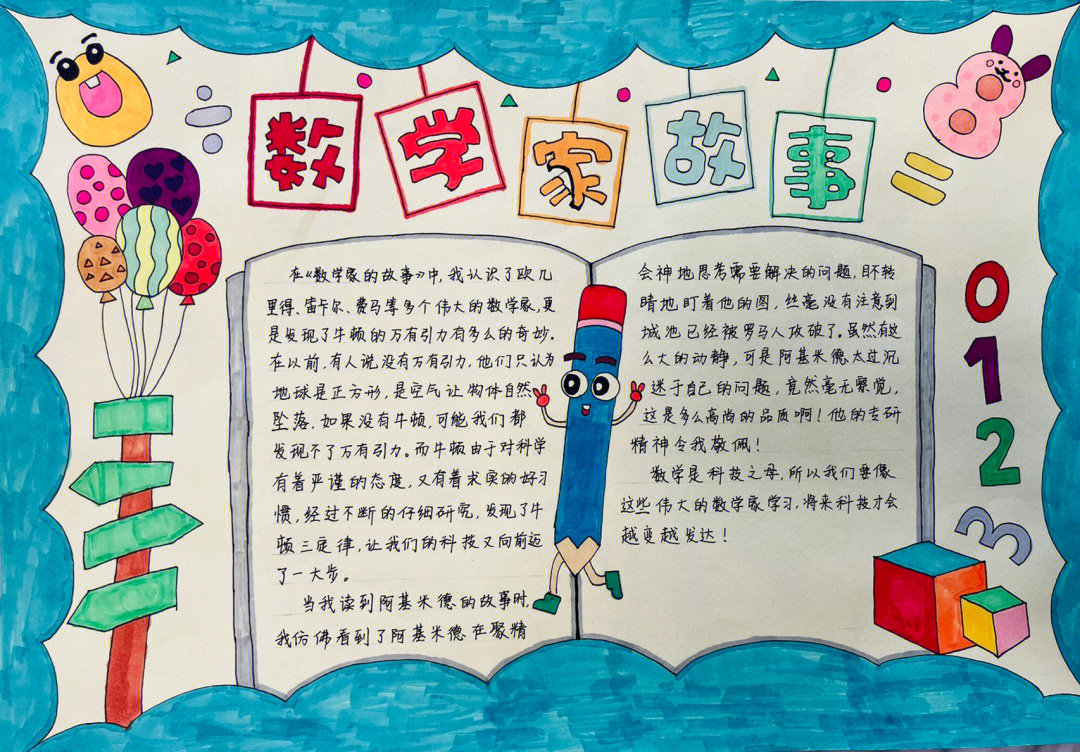 数学家故事
在《数学家的故事》中,我认识了欧几
里得、笛卡尔、费马等多个伟大的数学家,更
是发现了牛顿的万有引力有多么的奇妙。
在以前,有人说没有万有引力,他们只认为
地球是正方形,是空气让物体自然
坠落,如果没有牛顿,可能我们都
发现不了万有引力。而牛顿由于对科学
有着严谨的态度,又有着求实的好习
惯,经过不断的仔细研究,发现了牛
顿三定律,让我们的科技又向前迈
了一大步。
当我读到阿基米德的故事时,
我仿佛看到了阿基米德在聚精
会神地思考需要解决的问题,目不转
睛地盯着他的图,丝毫没有注意到
城池已经被罗马人攻破了。虽然有这
么大的动静,可是阿基米德太过沉
迷于自己的问题,竟然毫无察觉,
这是多么高尚的品质啊!他的专研
精神令我敬佩!
数学是科技之母,所以我们要像
这些伟大的数学家学习,将来科技才会
越变越发达!
0
1
2
3